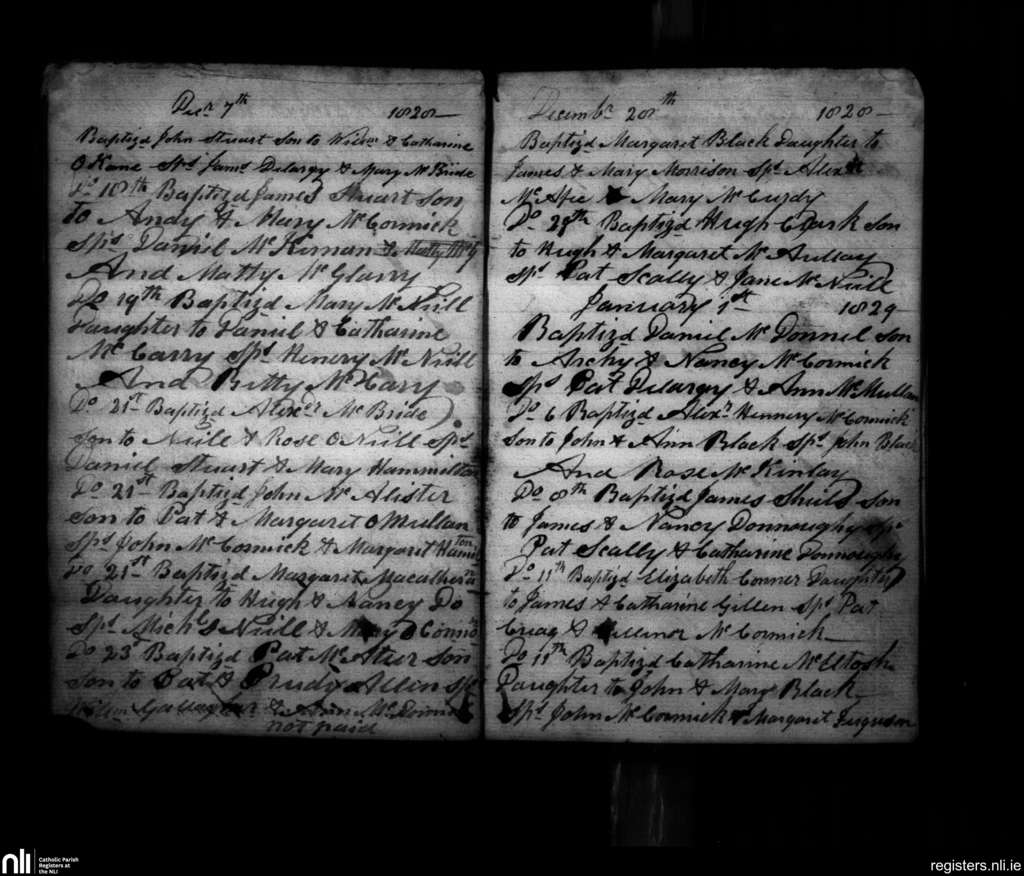 Decr 7th 1828
Baptizd John Stuart Son to Willm & Catharine
O Kane Sps Jams Delargy & Mary Mc Bride
Do 18th Baptizd James Stuart son
to Andy & Mary Mc Cormick
Sps Daniel Mc Kirnan & Matty Mc G
And Matty Mc Glarry
Do 19th Baptizd Mary Mc Niill
Daughter to Daniel & Catharine
Mc Carry Sps Henery Mc Niill
And Betty Mc Hary
Do 21st Baptizd Alexdr Mc Bride
Son to Niill & Rose O Niill Sps
Daniel Stuart & Mary Hammilton
Do 21st Baptizd John Mc Alister
Son to Pat & Margaret O Mullan
Sps John Mc Cormick & Margaret Hamilton
Do 21st Baptizd Margaret
Daughter to Hugh & Nancy Do
Sps Michl O Niill & Mary O Connor
Do 23 Baptizd Pat Mc Ateer Son
Son to Pat & Prudy Allin Sps
Gallagher & Ann Mc
not paid
Decembr 28th 1828
Baptizd Margaret Black Daughter to
James & Mary Morrison Sps Alexr
Mc Afee & Mary Mc Curdy
Do 28th Baptizd Hugh Clark son
to Hugh & Margaret Mc Aullay
Sps Pat Scally & Jane Mc Niill
January 1st 1829
Baptizd Daniel Mc Donnel son
to Archy & Nancy Mc Cormick
Sps Pat Delargy & Ann Mc Mullan
Do 6 Baptizd Alexr Hennery Mc Cormick
Son to John & Ann Black Sps John Black
And Rose Mc Kinlay
Do 8th Baptizd James Shuild son
to James & Nancy Donnoughy Sps
Pat Scally & Catharine Donnoughy
Do 11th Baptizd Elizabeth Conner Daughter
to James & Catharine Gillen Sps Pat
Creag & Ellinor Mc Cormick
Do 11th Baptizd Catharine Mc Eltosh
Daughter to John & Mary Black
Sps John Mc Cormick & Margaret Ferguson
nli
Catholic Parish
Registers at
the NLI
registers.nli.ie